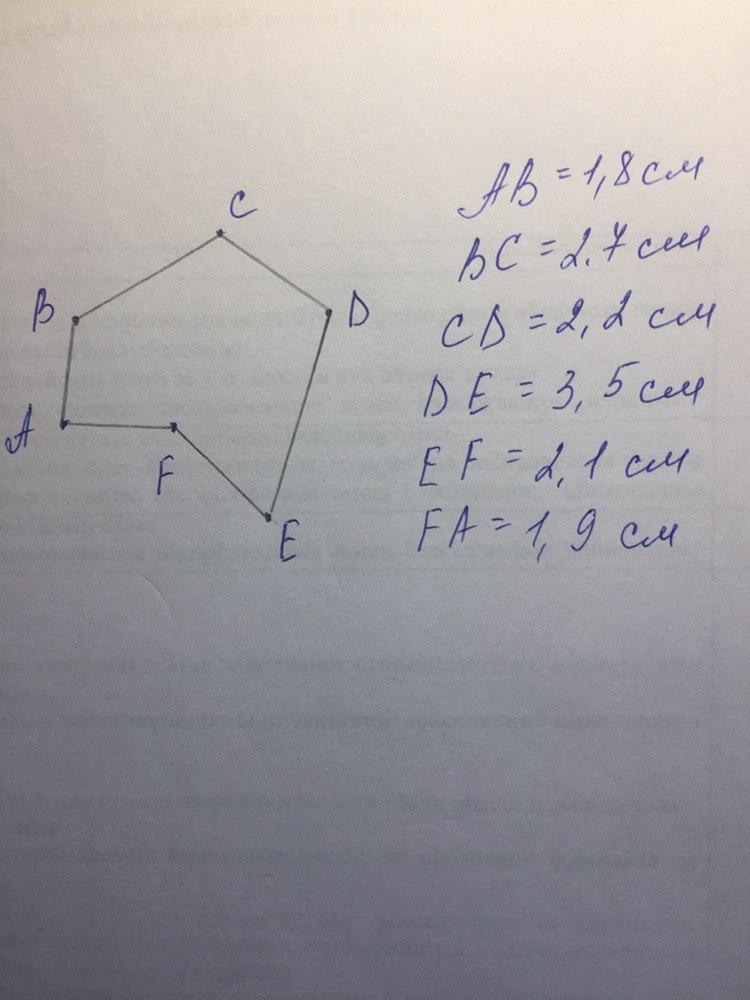 C
B
D
A
F
E
AB = 1,8 см
BC = 2.7 см
CD = 2,2 см
DE = 3,5 см
EF = 2,1 см
FA = 1,9 см